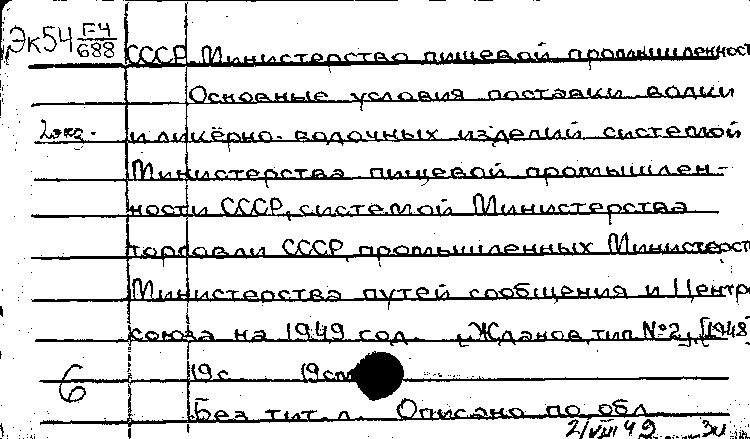 Эк54 Г-4/688
СССР. Министерство пищевой промышленност
Основные условия поставки водки
2 экз. и ликёрно-водочных изделий системой
Министерства пищевой промышлен-
ности СССР, системой Министерства
торговли СССР, промышленных Министерст
Министерства путей сообщения и Центро
союза на 1949 год. [Жданов, тип. №2], [1948]
19 с. 19 см
6
Без тит. л. Описано по обл.
2/VIII 49